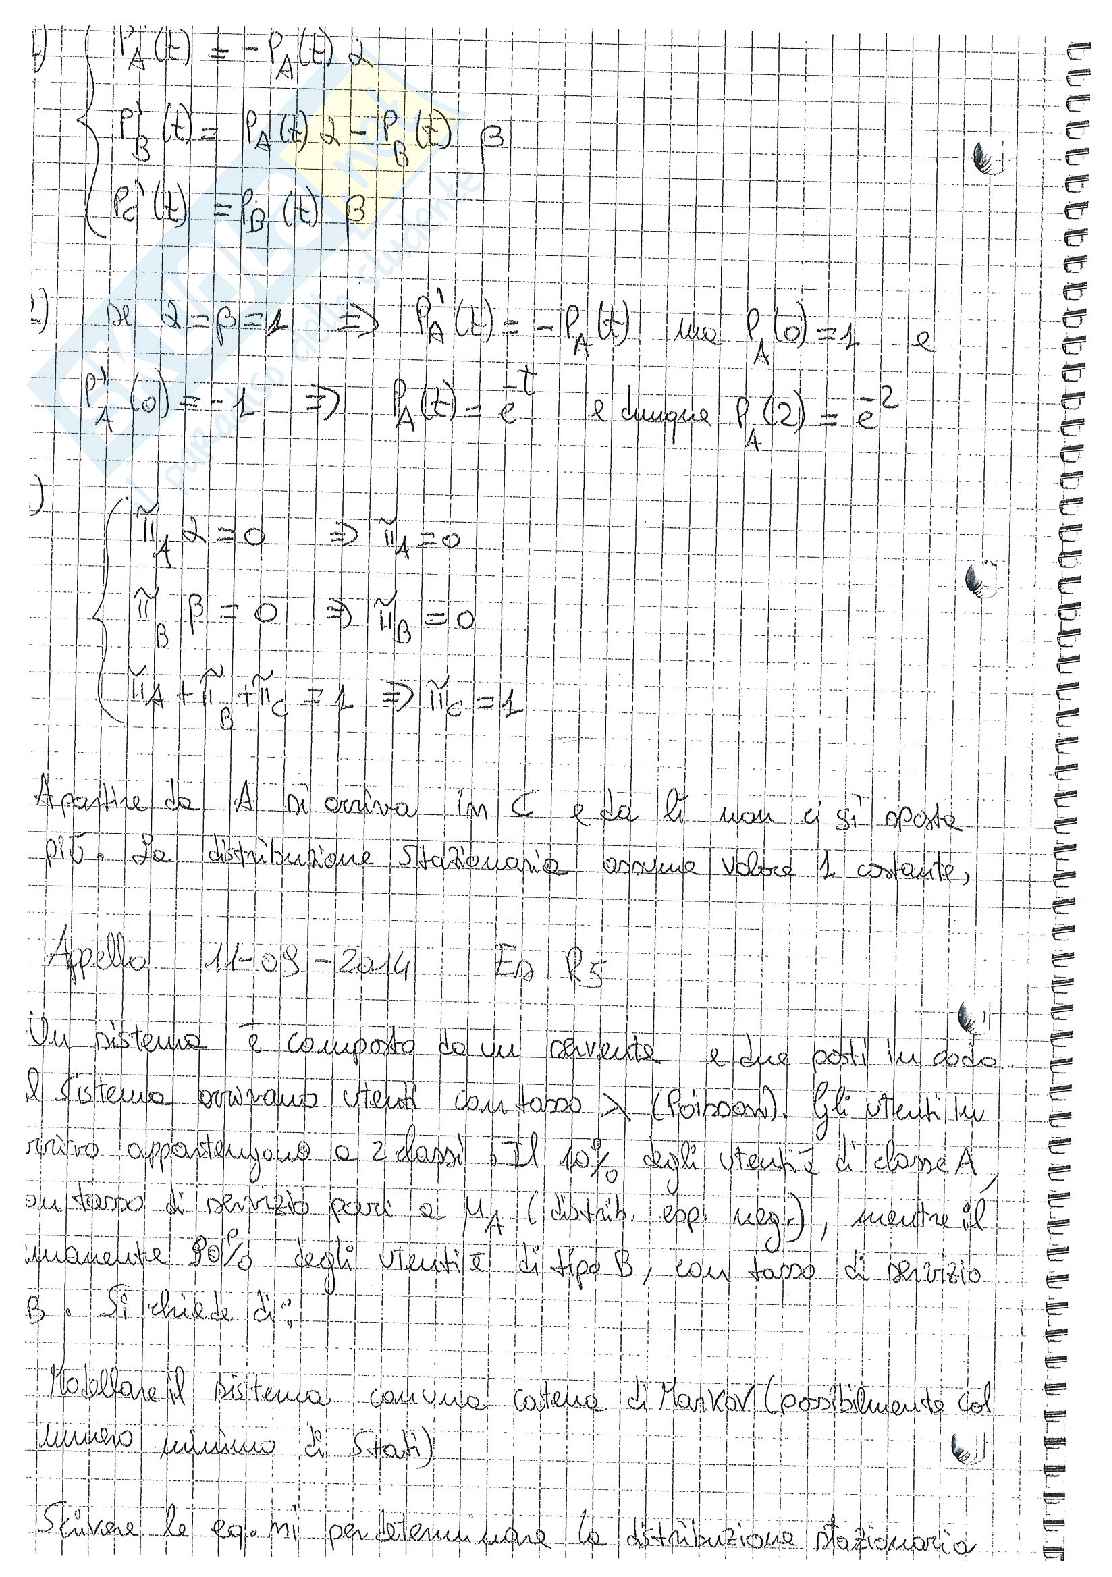 ) P'A(t) = -PA(t) α
P'B(t) = PA(t) α - PB(t) β
P'C(t) = PB(t) β
) se α = β = 1 ⇒ P'A(t) = -PA(t) ma PA(0) = 1 e
P'A(0) = -1 ⇒ PA(t) = e^-t e dunque PA(2) = e^-2
)
π̃A α = 0 ⇒ π̃A = 0
π̃B β = 0 ⇒ π̃B = 0
π̃A + π̃B + π̃C = 1 ⇒ π̃C = 1
A partire da A si arriva in C e da lì non ci si sposta
più. La distribuzione stazionaria assume valore 1 costante,
Appello 11-09-2014 Es R5
Un sistema è composto da un servente e due posti in coda
l sistema arrivano utenti con tasso λ (Poisson). Gli utenti in
rrivo appartengono a 2 classi. Il 10% degli utenti è di classe A,
on tasso di servizio pari a μA (distrib. esp. neg.), mentre il
imanente 90% degli utenti è di tipo B, con tasso di servizio
B. Si chiede di:
Modellare il sistema con una catena di Markov (possibilmente col
numero minimo di stati)
Scrivere le eq.ni per determinare la distribuzione stazionaria